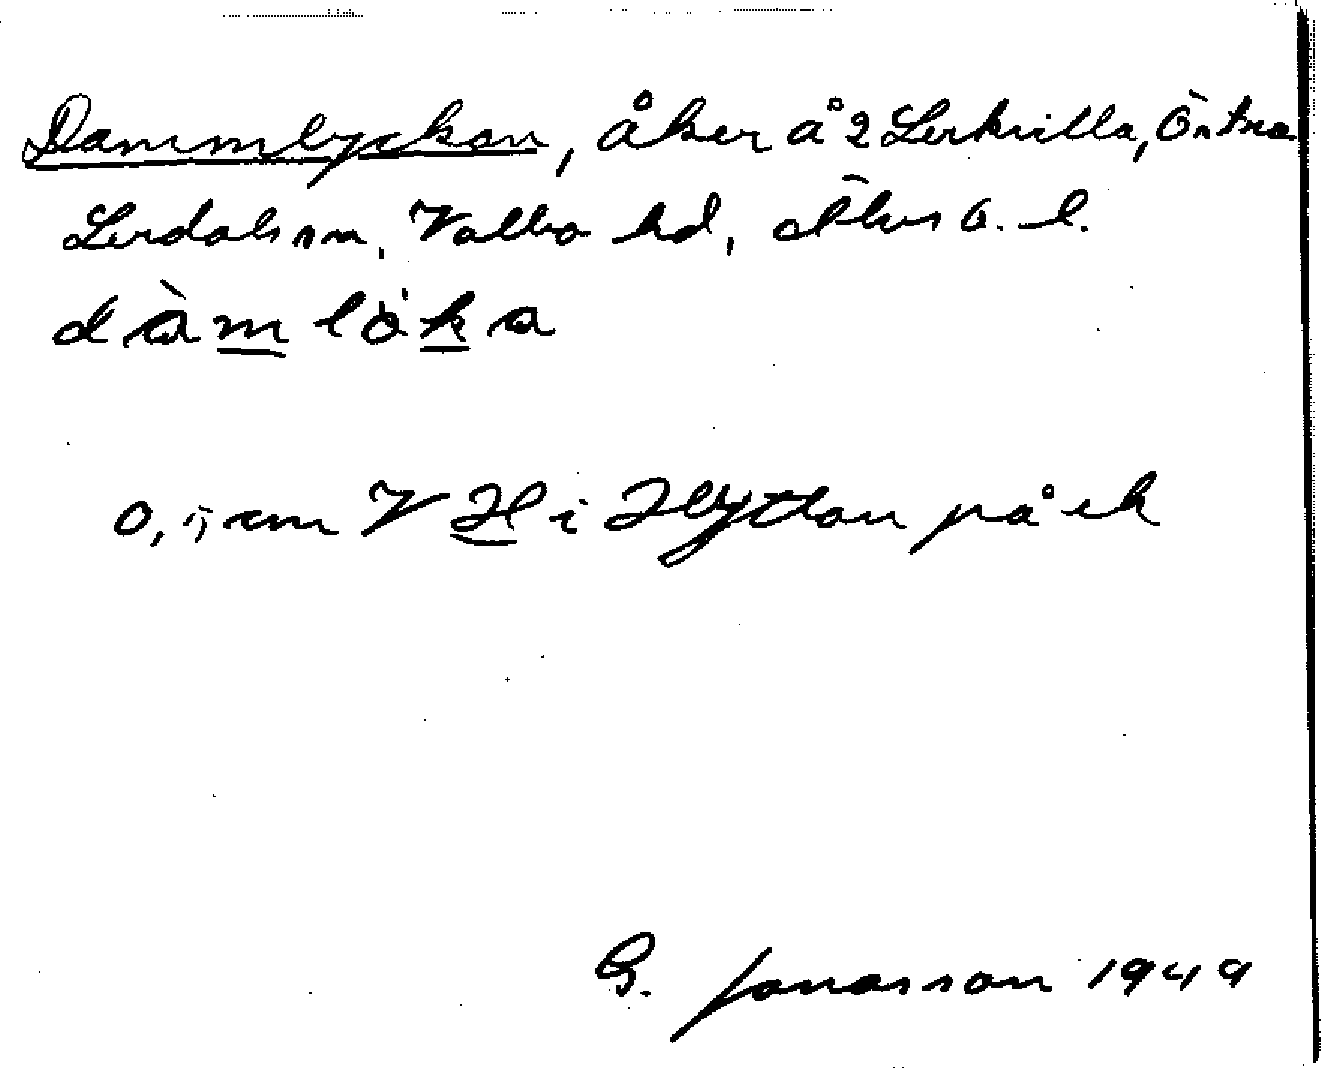 Dammlyckan, åker å 2 Lerkrilla, Östra
Lerdals sn, Valbo hd, Älvsb. l.
dàmlö̀ka
0,5 cm V H i Hyttan på ek
G. Jonasson 1949